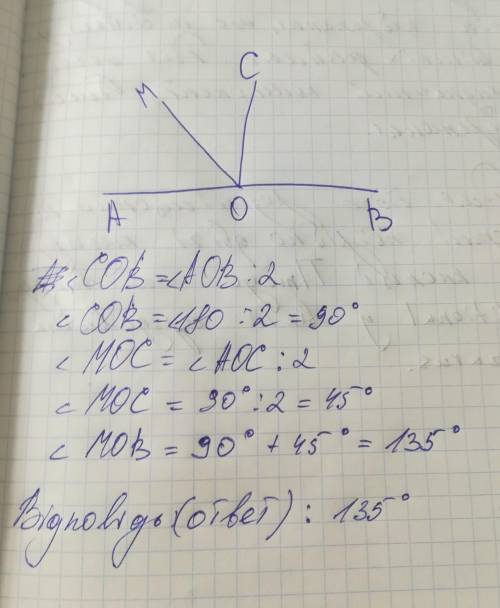 C
M
A O B
∠COB = ∠AOB : 2
∠COB = 180 : 2 = 90°
∠MOC = ∠AOC : 2
∠MOC = 90° : 2 = 45°
∠MOB = 90° + 45° = 135°
Відповідь (ответ): 135°